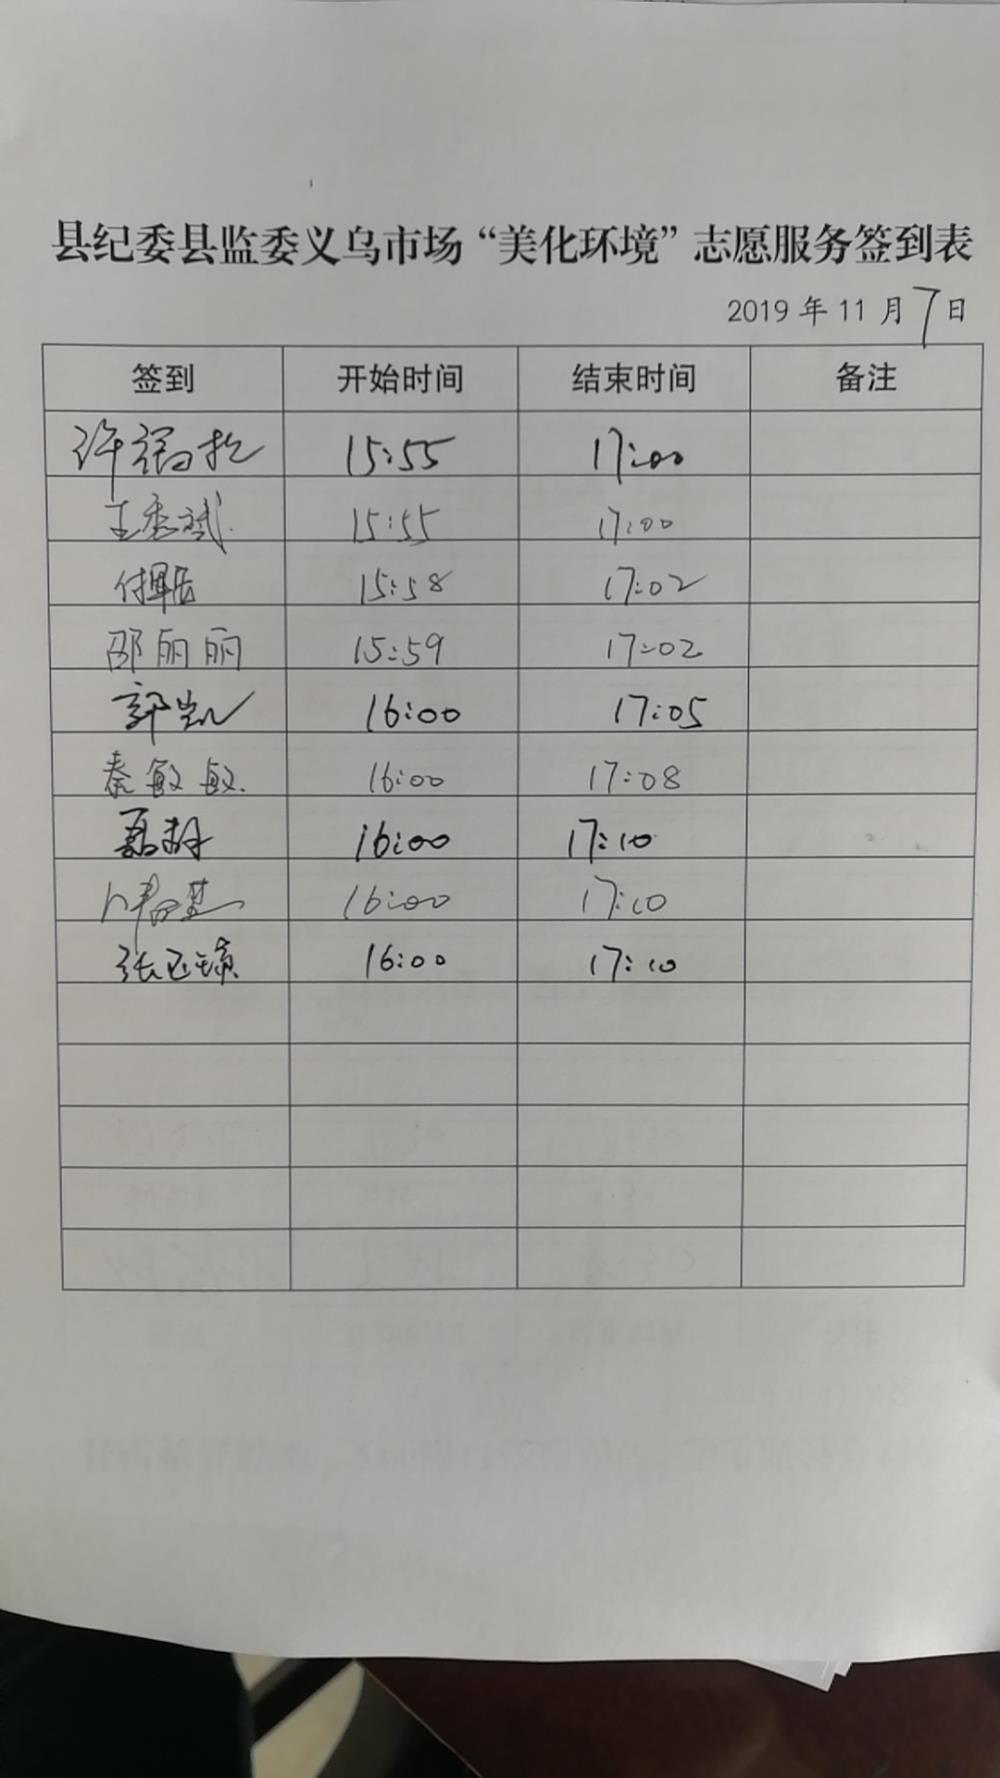 县纪委县监委义乌市场“美化环境”志愿服务签到表
2019年11月7日
签到 开始时间 结束时间 备注
许 15:55 17:00
王秀斌 15:55 17:00
付 15:58 17:02
邵丽丽 15:59 17:02
郭凯 16:00 17:05
秦敏敏 16:00 17:08
16:00 17:10
16:00 17:10
张 16:00 17:10